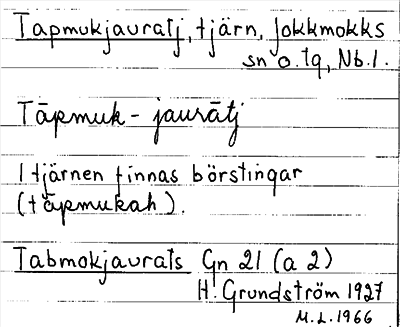 Tapmukjauratj, tjärn, Jokkmokks
sn o. tg, Nb. l.
Tāpmuk-jaurātj
I tjärnen finnas börstingar
(tāpmukah).
Tabmokjaurats Gn 21 (a 2)
H. Grundström 1927
M.L. 1966